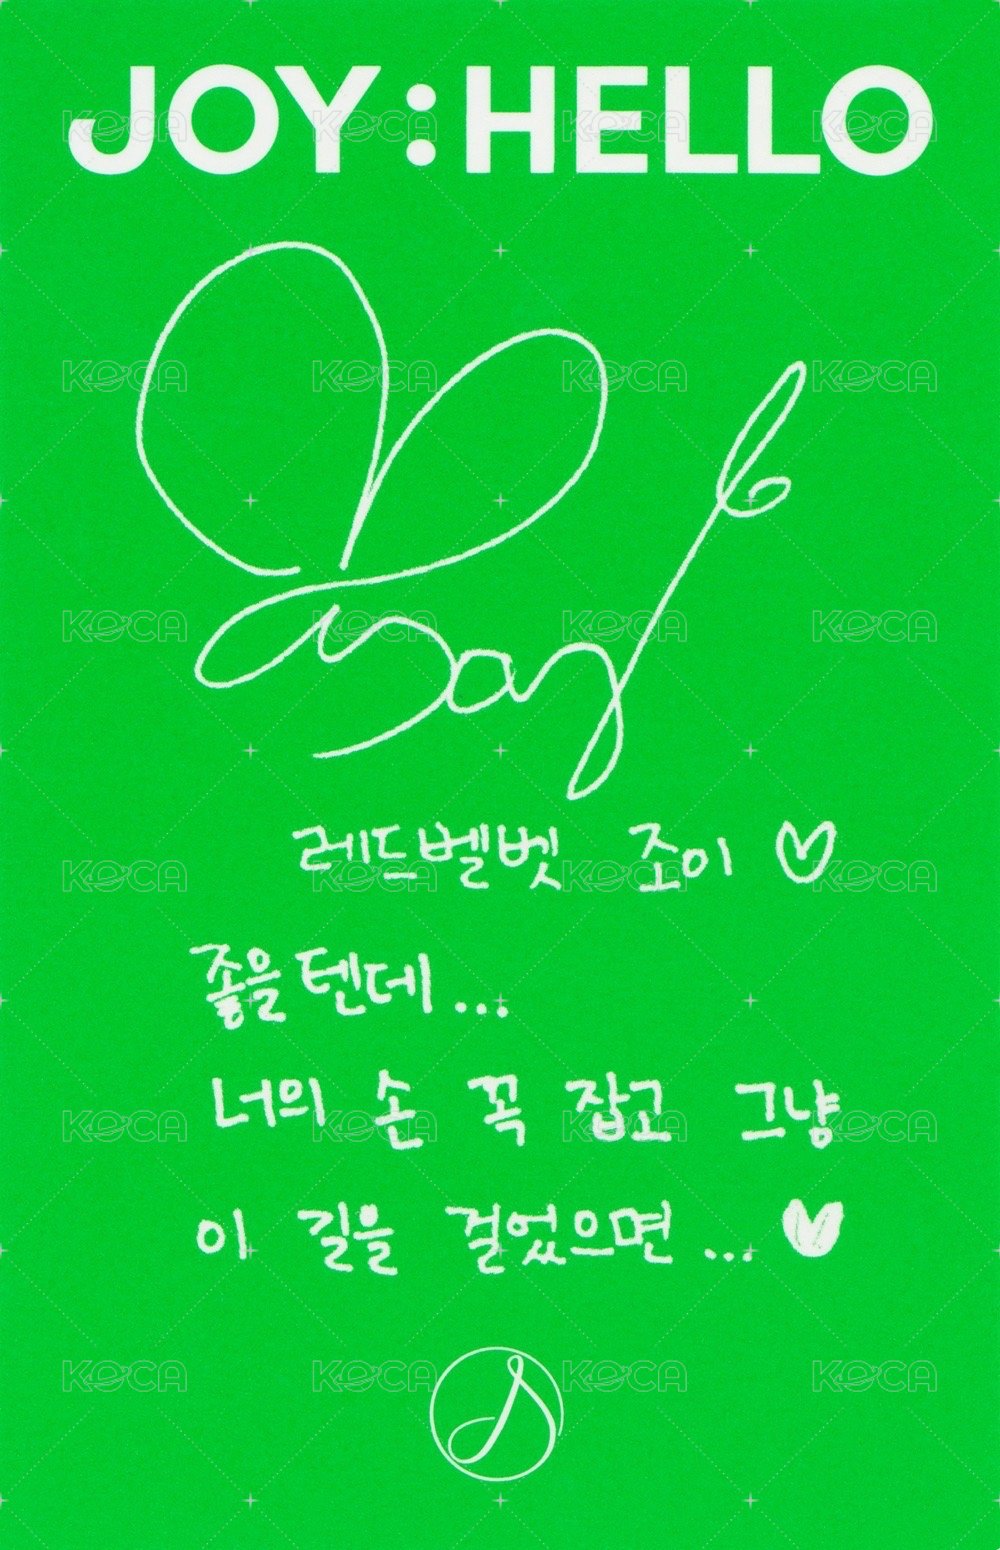 JOY:HELLO
Joy
레드벨벳 조이 ♡
좋을텐데...
너의 손 꼭 잡고 그냥
이 길을 걸었으면... ♥
KOCA